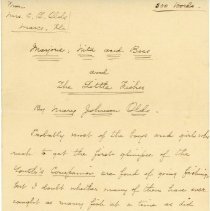 From
Mrs. C. E. Olds
500 words.
Marjorie, Wild and Bees
and
The Little Fisher
By Mary Johnson Olds.
Probably most of the boys and girls who
rush to get the first glimpse of the
Youth's Companion are fond of going fishing,
but I doubt whether many of them have ever
caught as many fish at a time as did